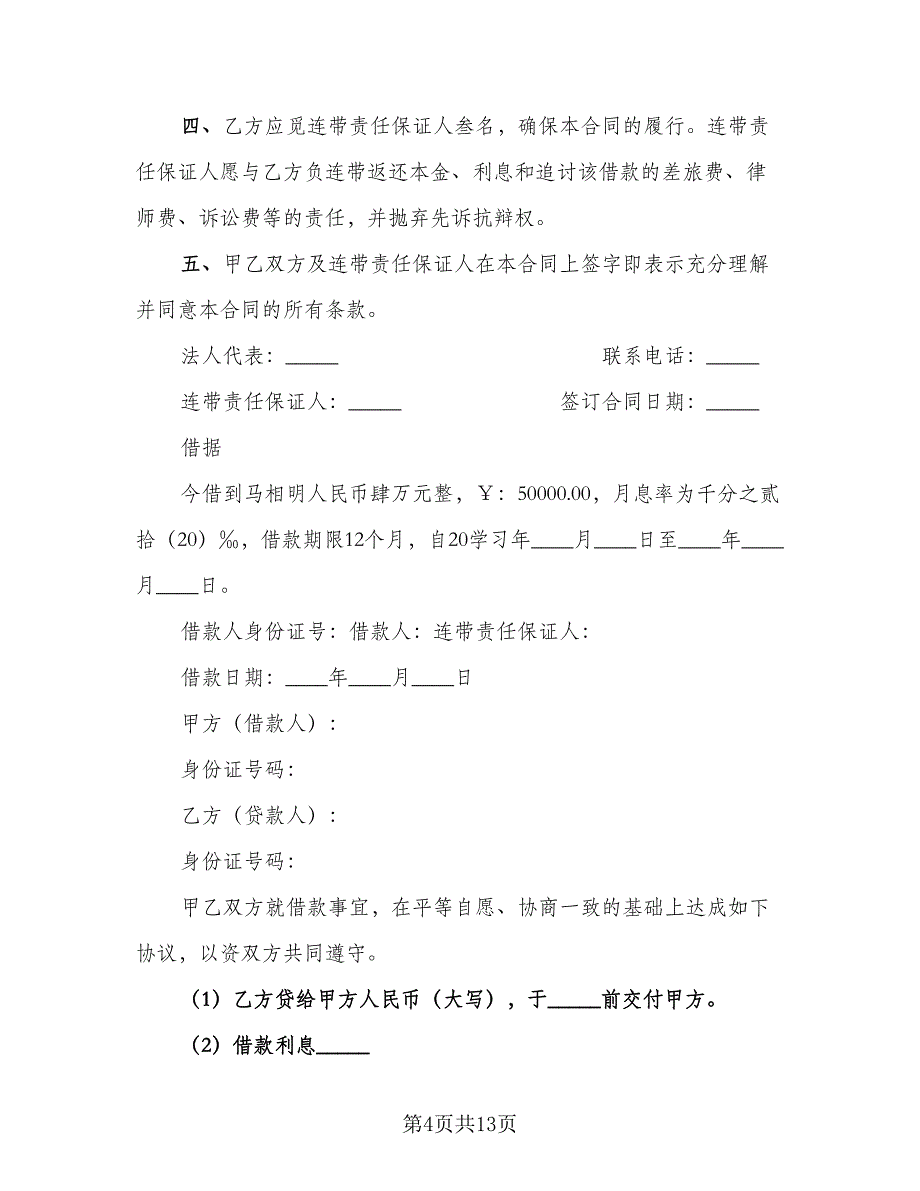 四、乙方应觅连带责任保证人叁名，确保本合同的履行。连带责
任保证人愿与乙方负连带返还本金、利息和追讨该借款的差旅费、律
师费、诉讼费等的责任，并抛弃先诉抗辩权。
五、甲乙双方及连带责任保证人在本合同上签字即表示充分理解
并同意本合同的所有条款。
法人代表：_____ 联系电话：_____
连带责任保证人：_____ 签订合同日期：_____
借据
今借到马相明人民币肆万元整，￥：50000.00，月息率为千分之贰
拾（20）‰，借款期限12个月，自20学习年____月____日至____年____
月____日。
借款人身份证号：借款人：连带责任保证人：
借款日期：____年____月____日
甲方（借款人）：
身份证号码：
乙方（贷款人）：
身份证号码：
甲乙双方就借款事宜，在平等自愿、协商一致的基础上达成如下
协议，以资双方共同遵守。
（1）乙方贷给甲方人民币（大写），于_____前交付甲方。
（2）借款利息_____
第4页共13页